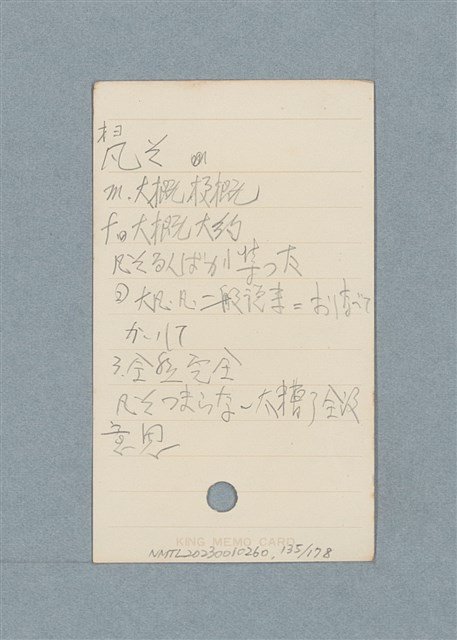 凡そ
m.大概 梗概
fo 大概 大約
凡そ るんばかり 集った
② 大凡.凡.一般說来=おしなべて
かいして
3.全然 完全
凡そつまらない 太糟了 全沒
意思
KING MEMO CARD
NMTL20230010260, 135/178